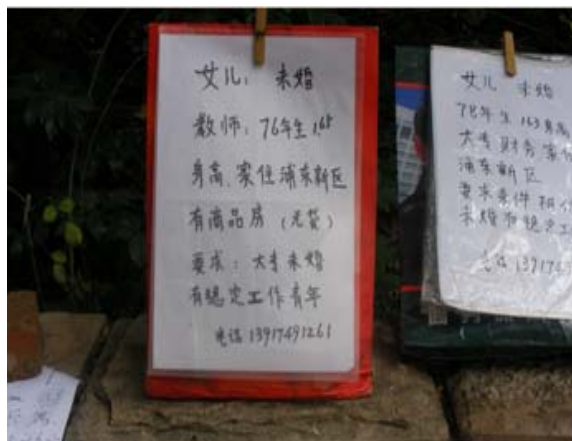 女儿: 未婚
教师: 76年生 1.65
身高、家住浦东新区
有商品房 (无贷)
要求: 大专未婚
有稳定工作青年
电话 13917491261
女儿 未婚
78年生 163身高
大专 财务 家住
浦东新区
要求条件相
未婚 有稳定工
电话 139174